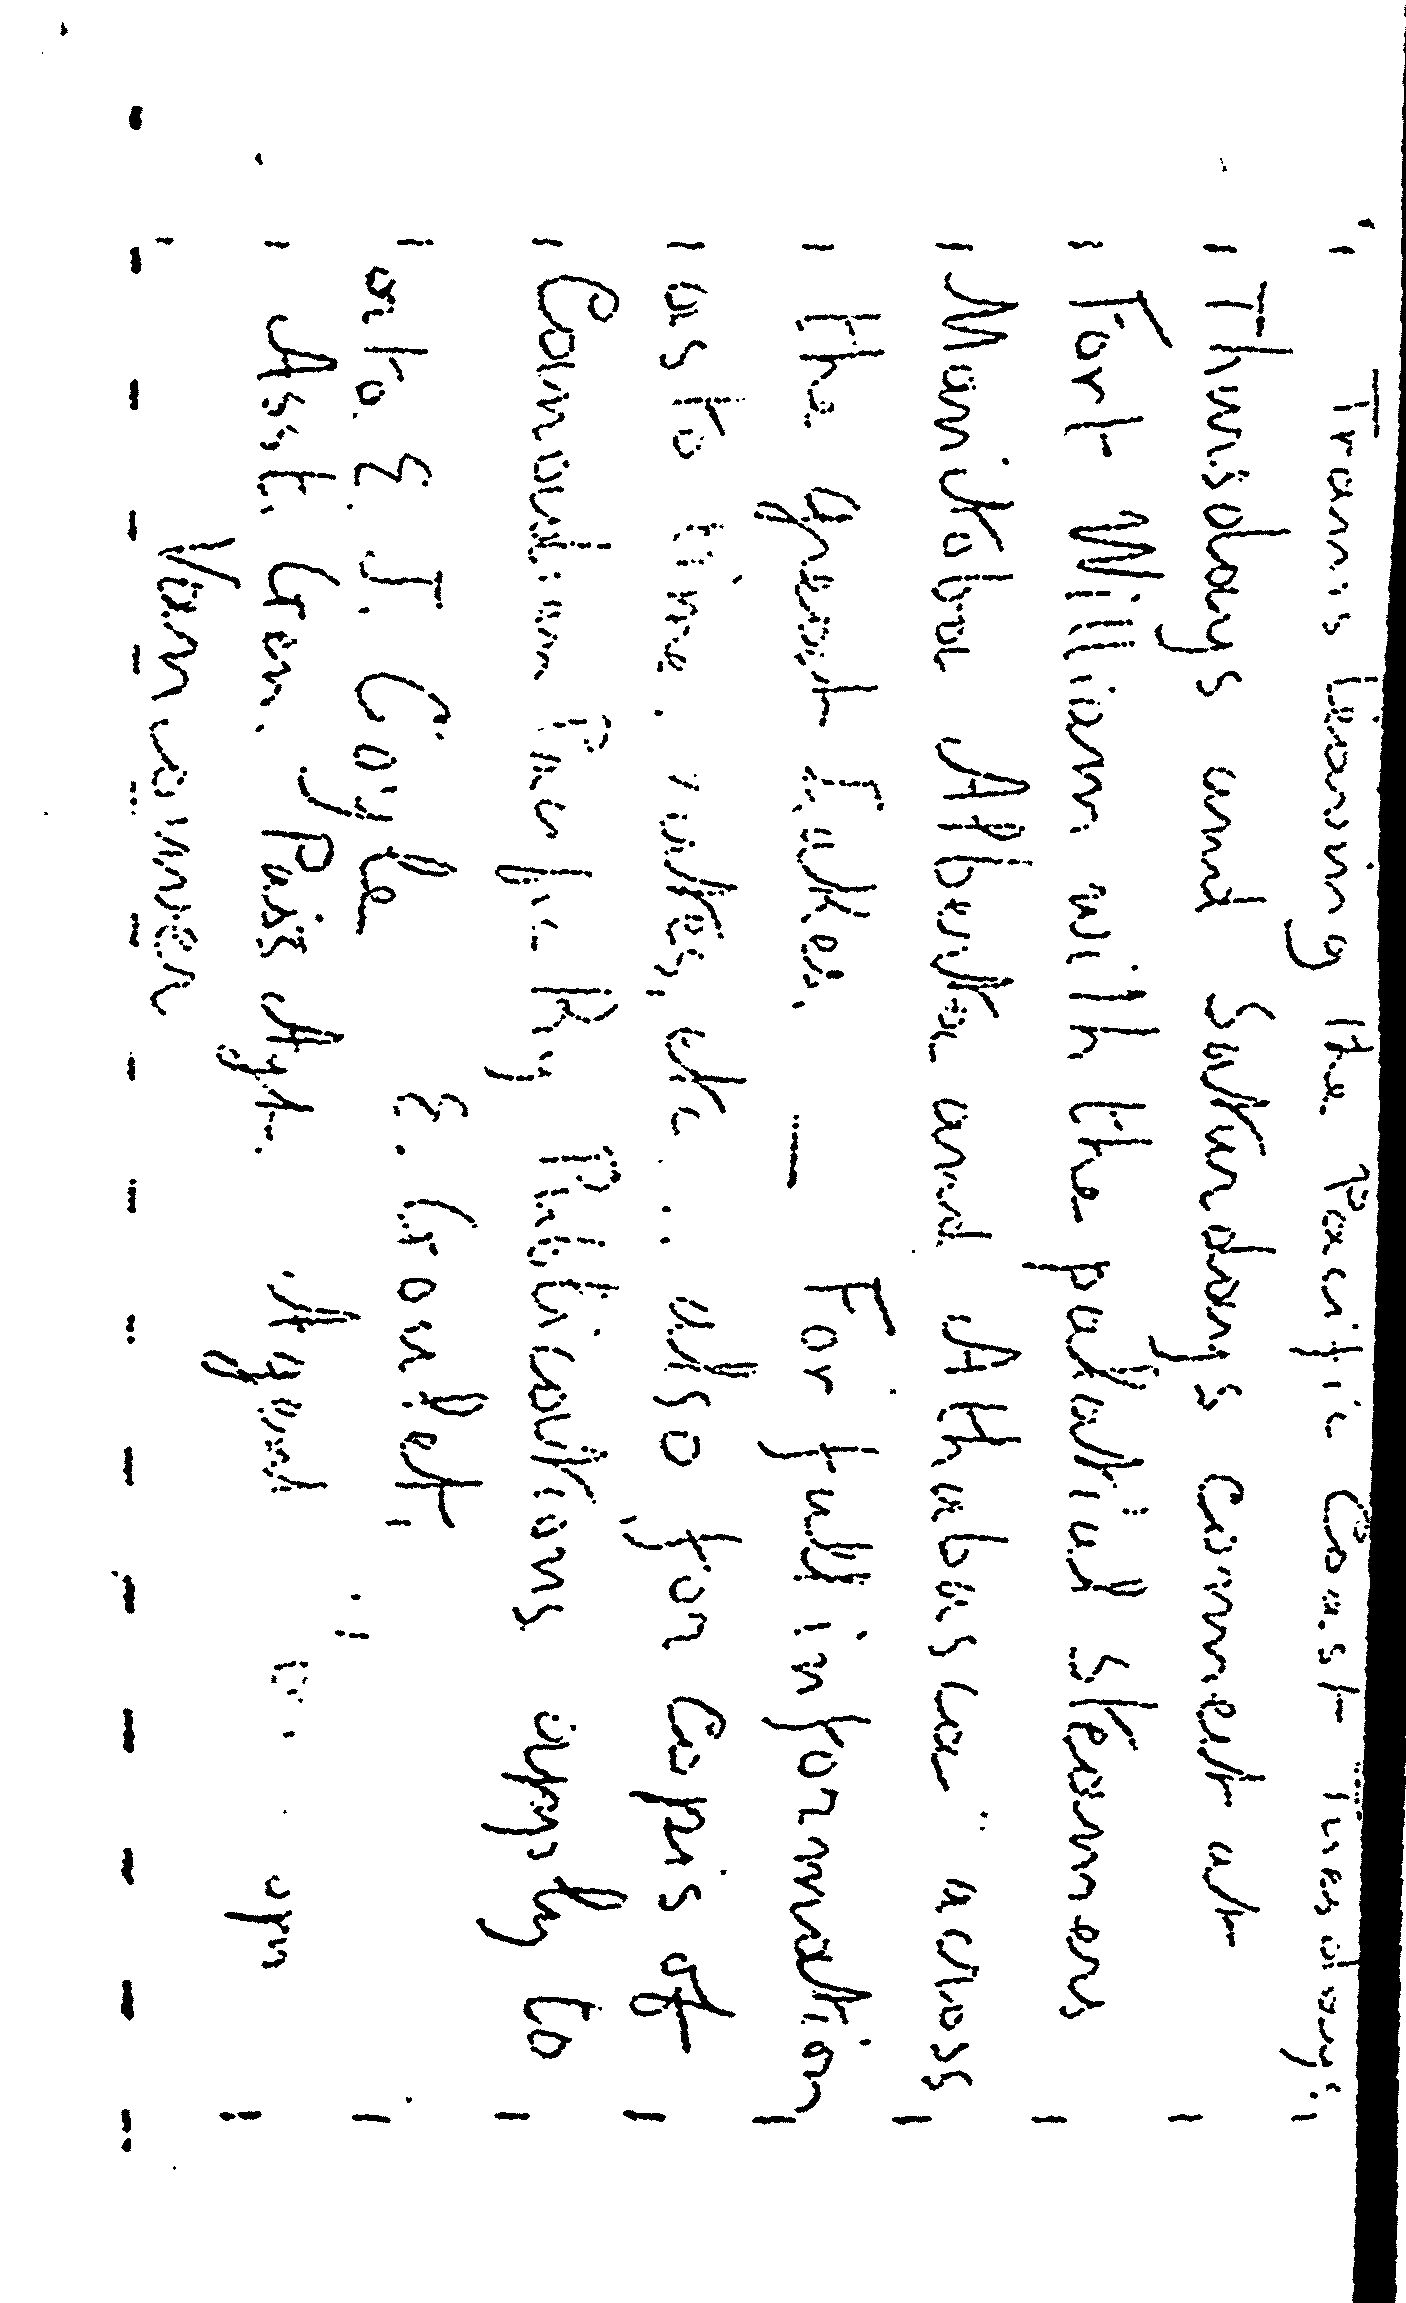 Trains Leaving the Pacific Coast Tuesdays
Thursdays and Saturdays connect at
Fort William with the palatial steamers
Manitoba Alberta and Athabasca across
the great Lakes. — For full information
as to time, rates, etc.. also for Copis of
Canadian Pacific Ry Publications apply to
or to. E. J. Coyle E. Goulet,
Asst. Gen. Pass Agt. Agent
Vancouver